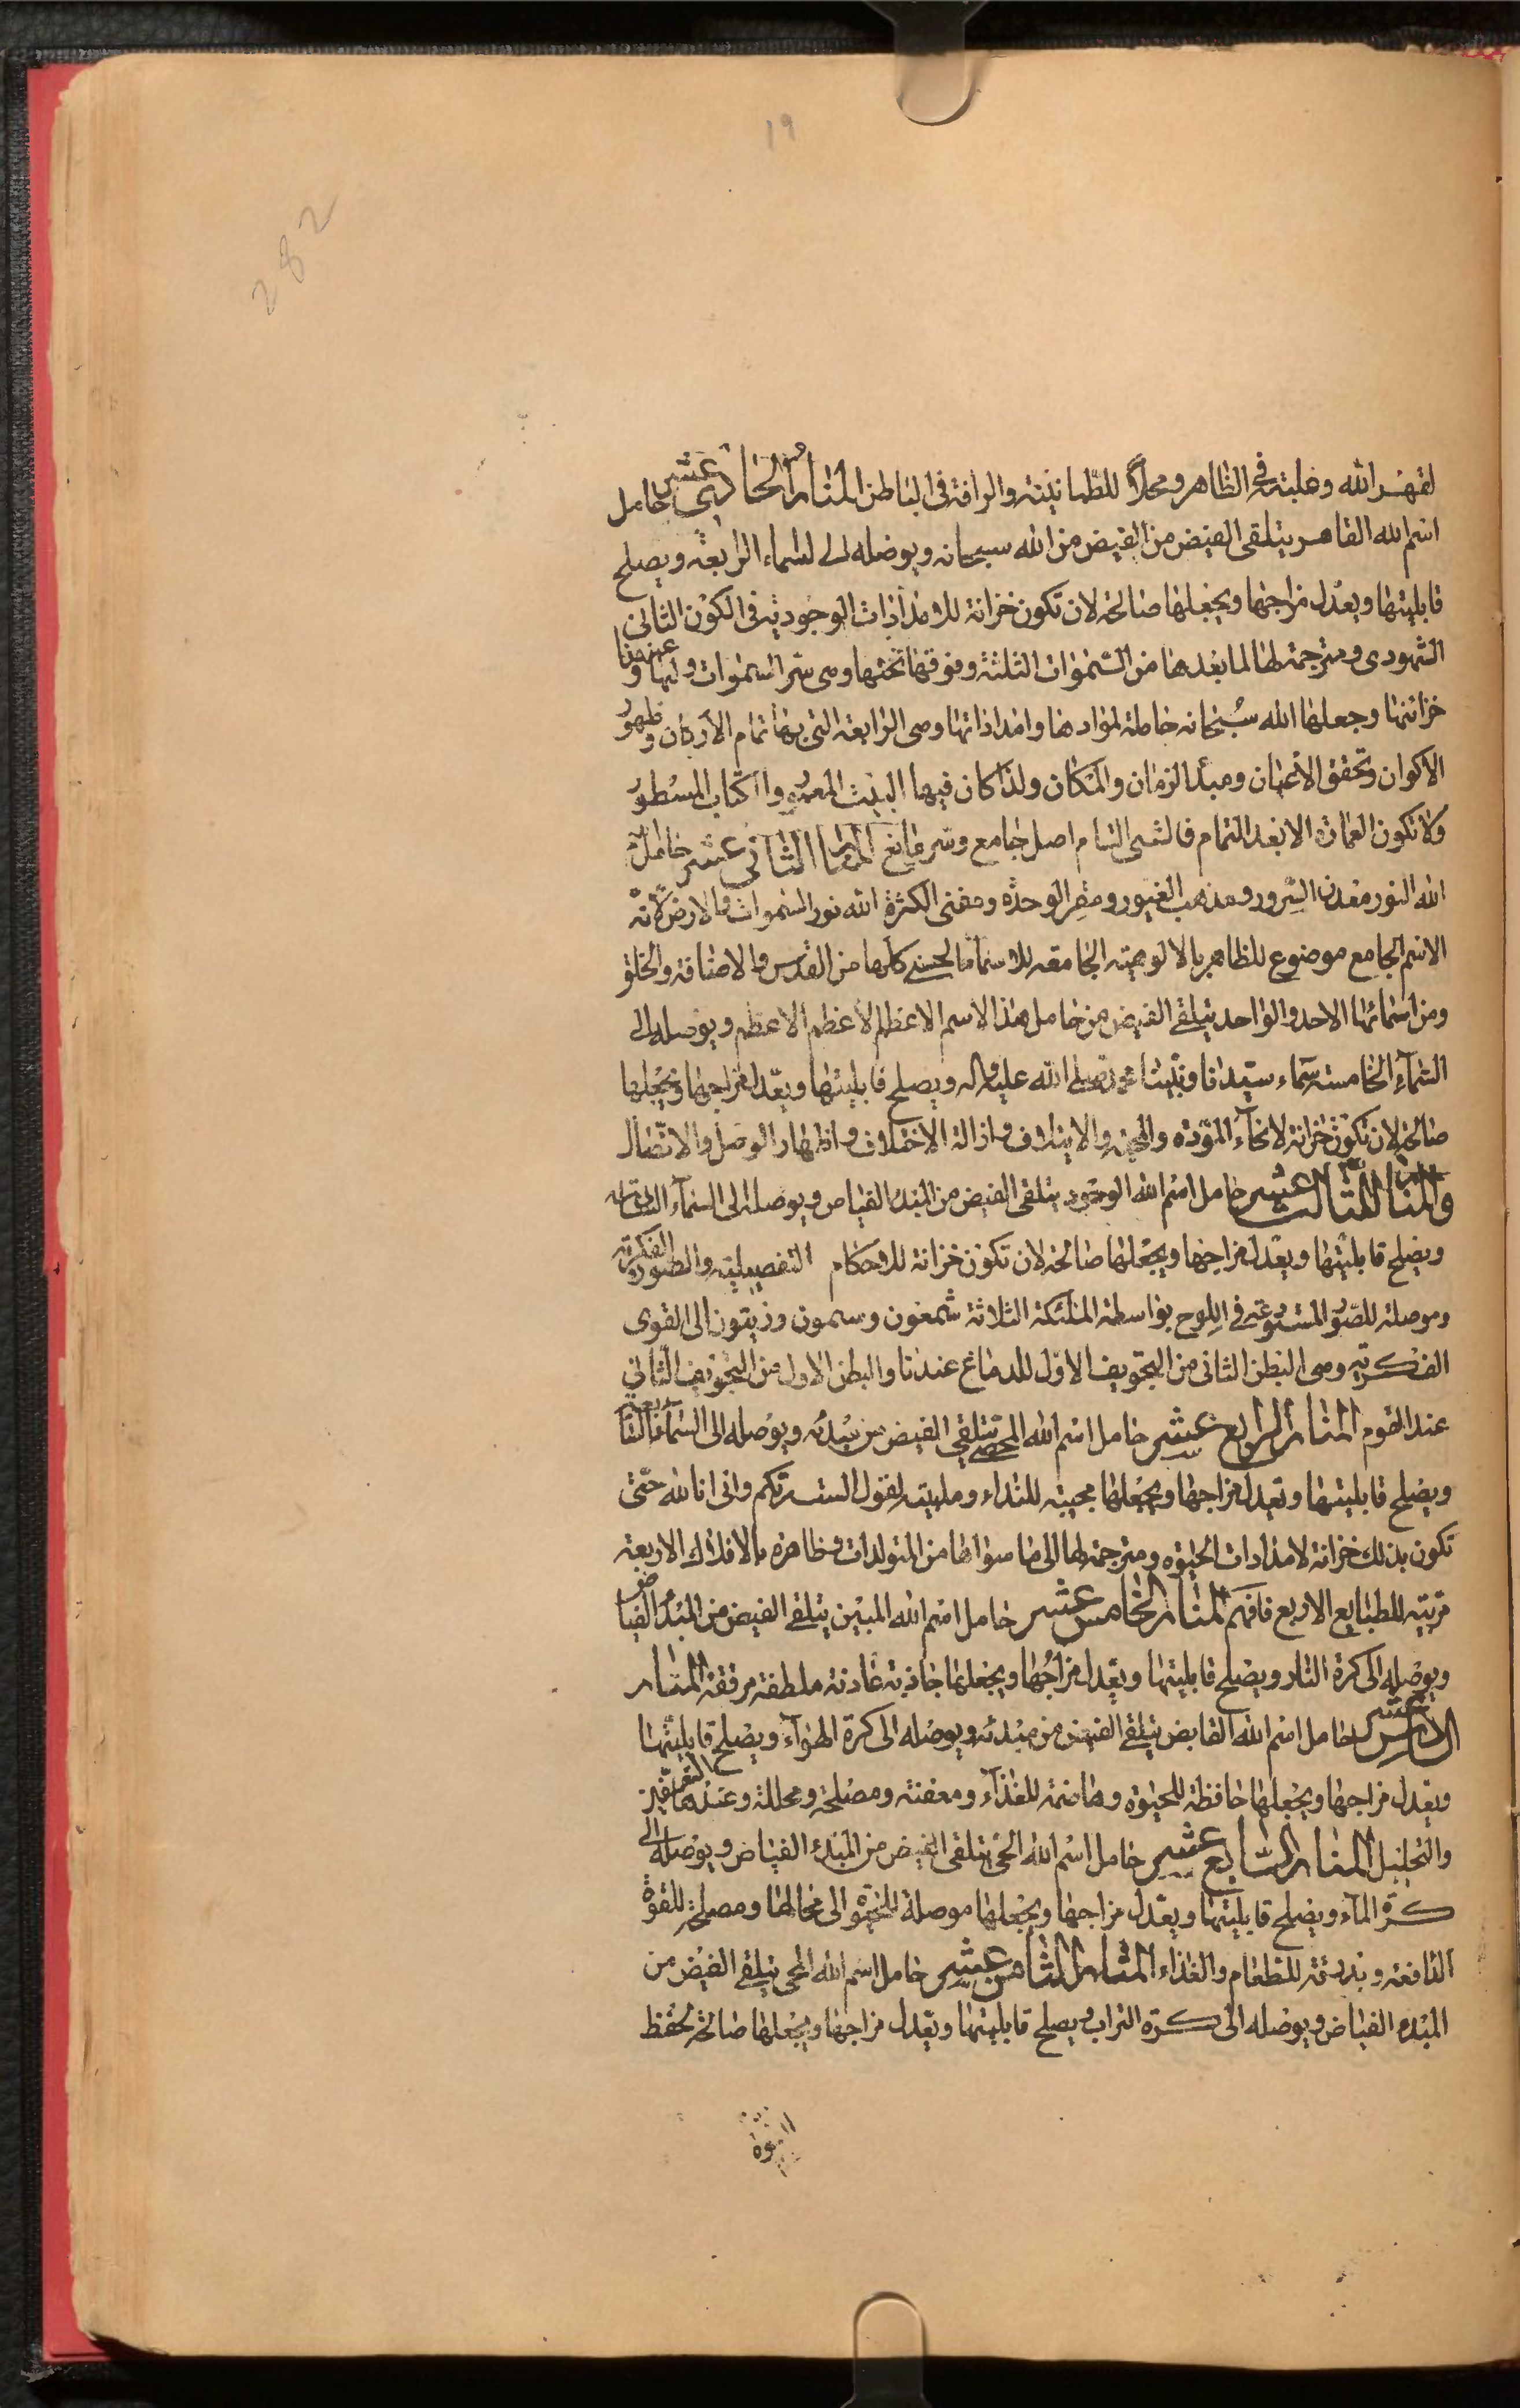 19
282
لقهر الله وغلبته في الظاهر ومحلا للطمانينة والرافة في الباطن المنار الحادي عشر حامل
اسم الله القاهر يتلقى الفيض من الفيض من الله سبحانه ويوصله الى السماء الرابعة ويصلح
قابليتها ويعدل مزاجها ويجعلها صالحة لان تكون خزانة للامدادات الوجودية في الكون الثاني
ومترجمة لها لما بعدها من السموات الثلثة وفوقها تحتها وهي سر السموات ولبها و
خزائنها وجعلها الله سبحانه حاملة لموادها وامداداتها وهي الرابعة التي بها تمام الاركان وظهور
الاكوان وتحقق الاعيان ومبدأ الزمان والمكان ولذا كان فيها البيت المعمور والكتاب المسطور
ولا تكون العمارة الا بعد التمام فالشيء التام اصل جامع وسر مانع المنار الثاني عشر حامل
الله النور معدن السرور ومذهب الغيور ومقر الوحدة ومفنى الكثرة الله نور السموات والارض لانه
الاسم الجامع موضوع للظاهر بالالوهية الجامعة للاسماء الحسنى كلها من القدس والاضافة والخلق
ومن اسمائها الاحد والواحد يتلقى الفيض من حامل هذا الاسم الاعظم الاعظم الاعظم ويوصله الى
السماء الخامسة سماء سيدنا ونبينا محمد صلى الله عليه واله ويصلح قابليتها ويعدل مزاجها ويجعلها
صالحة لان تكون خزانة لانحاء المودة والمحبة والايتلاف وازالة الاختلاف واظهار الوصل والاتصال
والمنار الثالث عشر حامل اسم الله الودود يتلقى الفيض من المبدء الفياض ويوصله الى السماء
ويصلح قابليتها ويعدل مزاجها ويجعلها صالحة لان تكون خزانة للاحكام التفصيلية والصور الفكرية
وموصلة للصور في اللوح بواسطة الملئكة الثلاثة شمعون وسمون وزيتون الى القوى
الفكرية وهي البطن الثاني من التجويف الاول للدماغ عندنا والبطن الاول من التجويف الثاني
عند القوم المنار الرابع عشر حامل اسم الله المحصي يتلقى الفيض من مبدئه ويوصله الى السماء السابعة
ويصلح قابليتها ويعدل مزاجها ويجعلها مجيبة للنداء وملبية لقول الست بربكم واني انا الله حتى
تكون بذلك خزانة لامدادات الحيوة ومترجمة لها الى ما سواها من المتولدات وظاهرة بالافلاك الاربعة
مربية للطبايع الاربع فافهم المنار الخامس عشر حامل اسم الله المبين يتلقى الفيض من المبدء الفياض
ويوصله الى كرة النار ويصلح قابليتها ويعدل مزاجها ويجعلها جاذبة ملطفة مرققة المنار
السادس عشر حامل اسم الله القابض يتلقى الفيض من مبدئه ويوصله الى كرة الهواء ويصلح قابليتها
ويعدل مزاجها ويجعلها حافظة للحيوة وهاضمة للغذاء ومعفنة ومصلحة ومحللة وعندها التفريق
والتحليل المنار السابع عشر حامل اسم الله الحي يتلقى الفيض من المبدء الفياض ويوصله الى
كرة الماء ويصلح قابليتها ويعدل مزاجها ويجعلها موصلة للحيوة الى محالها ومصلحة للقوة
الدافعة وبذرقة للطعام والغذاء المنار الثامن عشر حامل اسم الله المحيي يتلقى الفيض من
المبدء الفياض ويوصله الى كرة التراب ويصلح قابليتها ويعدل مزاجها ويجعلها صالحة لحفظ